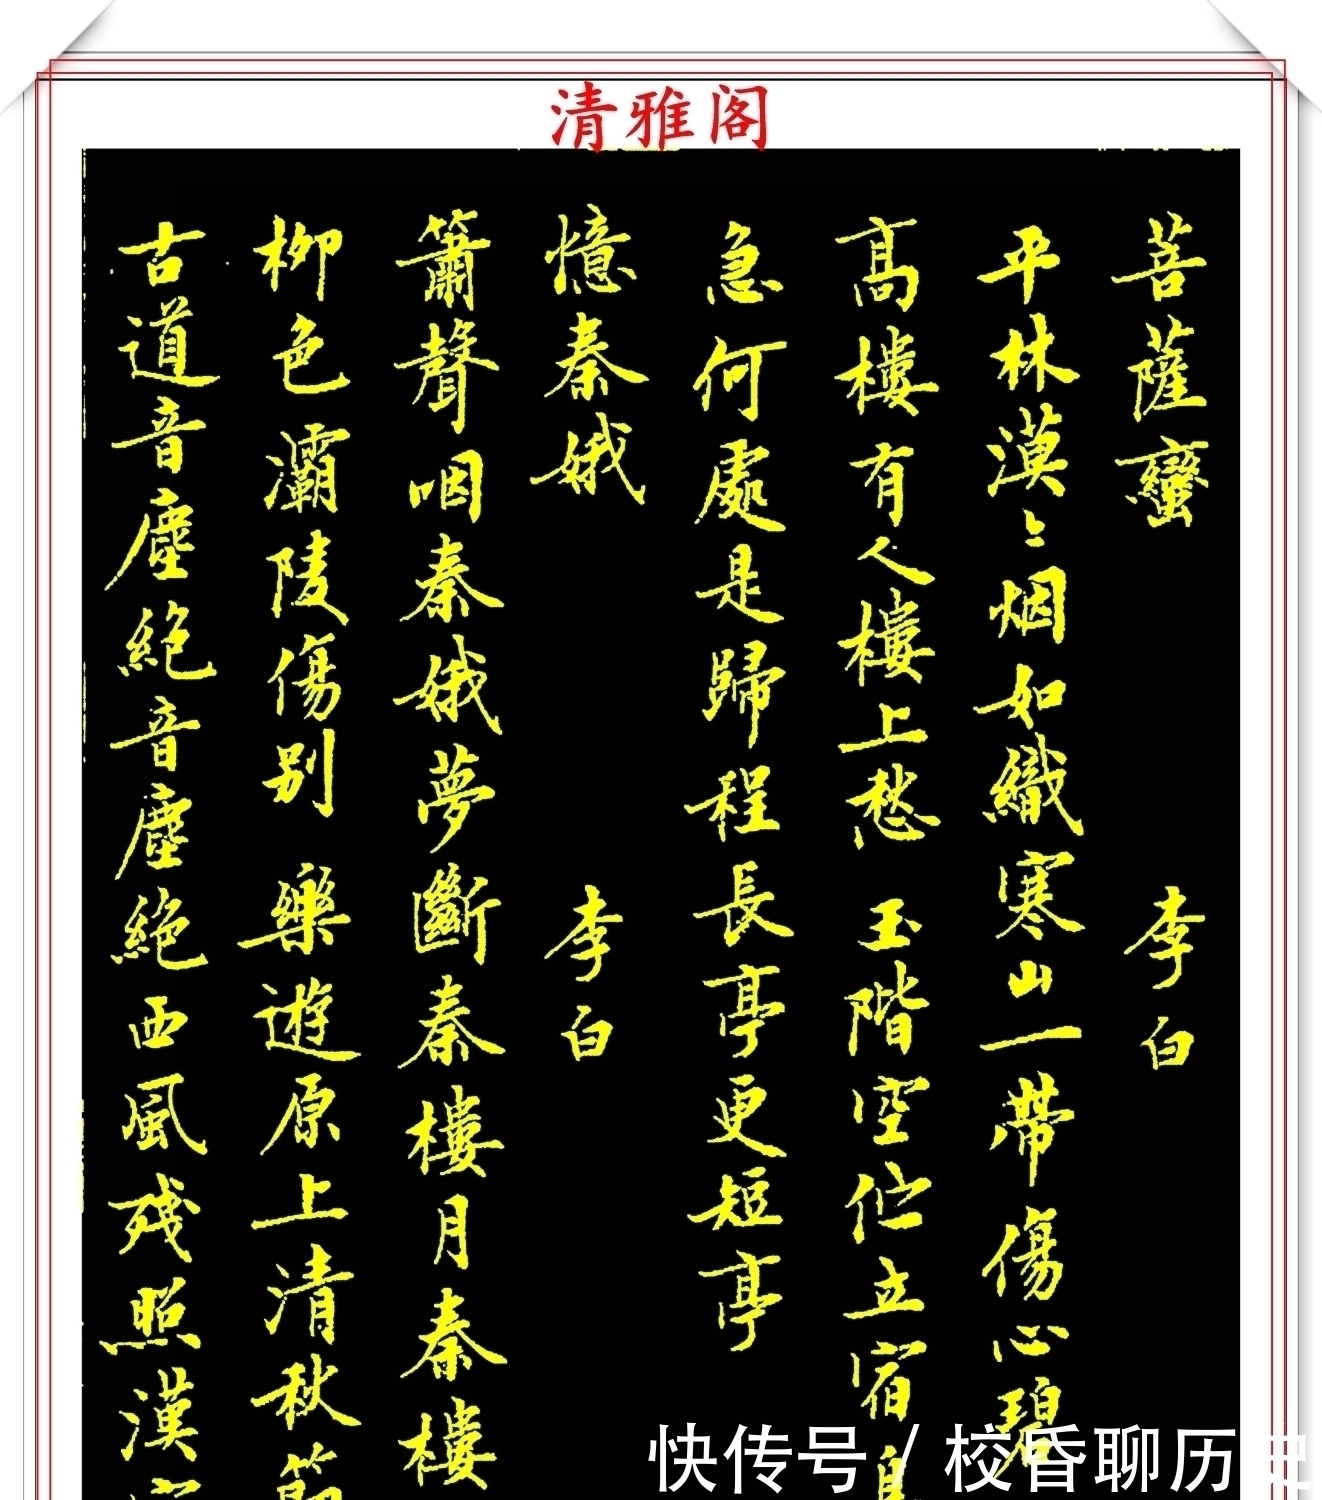 清雅阁
菩薩蠻 李白
平林漠〻烟如織寒山一帶傷心碧
高樓有人樓上愁 玉階空伫立宿
急何處是歸程長亭更短亭
憶秦娥 李白
簫聲咽秦娥夢斷秦樓月秦樓
柳色灞陵傷別 樂遊原上清秋節
古道音塵絕音塵絕西風残照漢
快传号/校昏聊历史